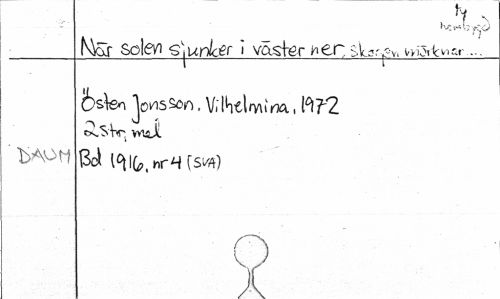 Ty
hembygd
När solen sjunker i väster ner, skogen mörknar...
Östen Jonsson. Vilhelmina, 1972
2 str, mel
DAUM Bd 1916, nr 4 (SVA)